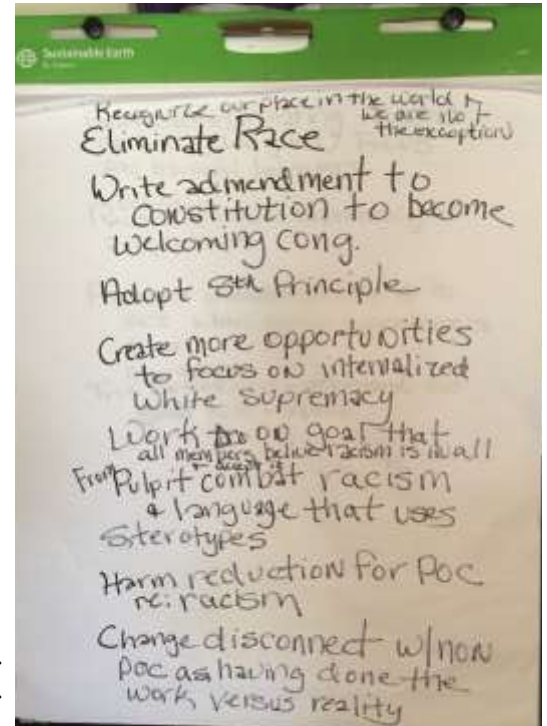 Sustainable Earth
Recognize our place in the world &
we are not
the exception
Eliminate Race
Write admendment to
constitution to become
welcoming cong.
Adopt 8th Principle
Create more opportunities
to focus on internalized
white supremacy
Work on goal that
all members belive racism is in all
& accept it
From Pulpit combat racism
& language that uses
sterotypes
Harm reduction for POC
re: racism
Change disconnect w/non
POC as having done the
work versus reality